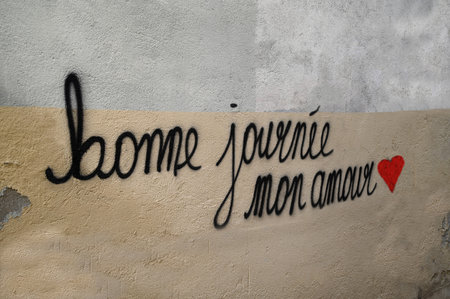 bonne journée
mon amour